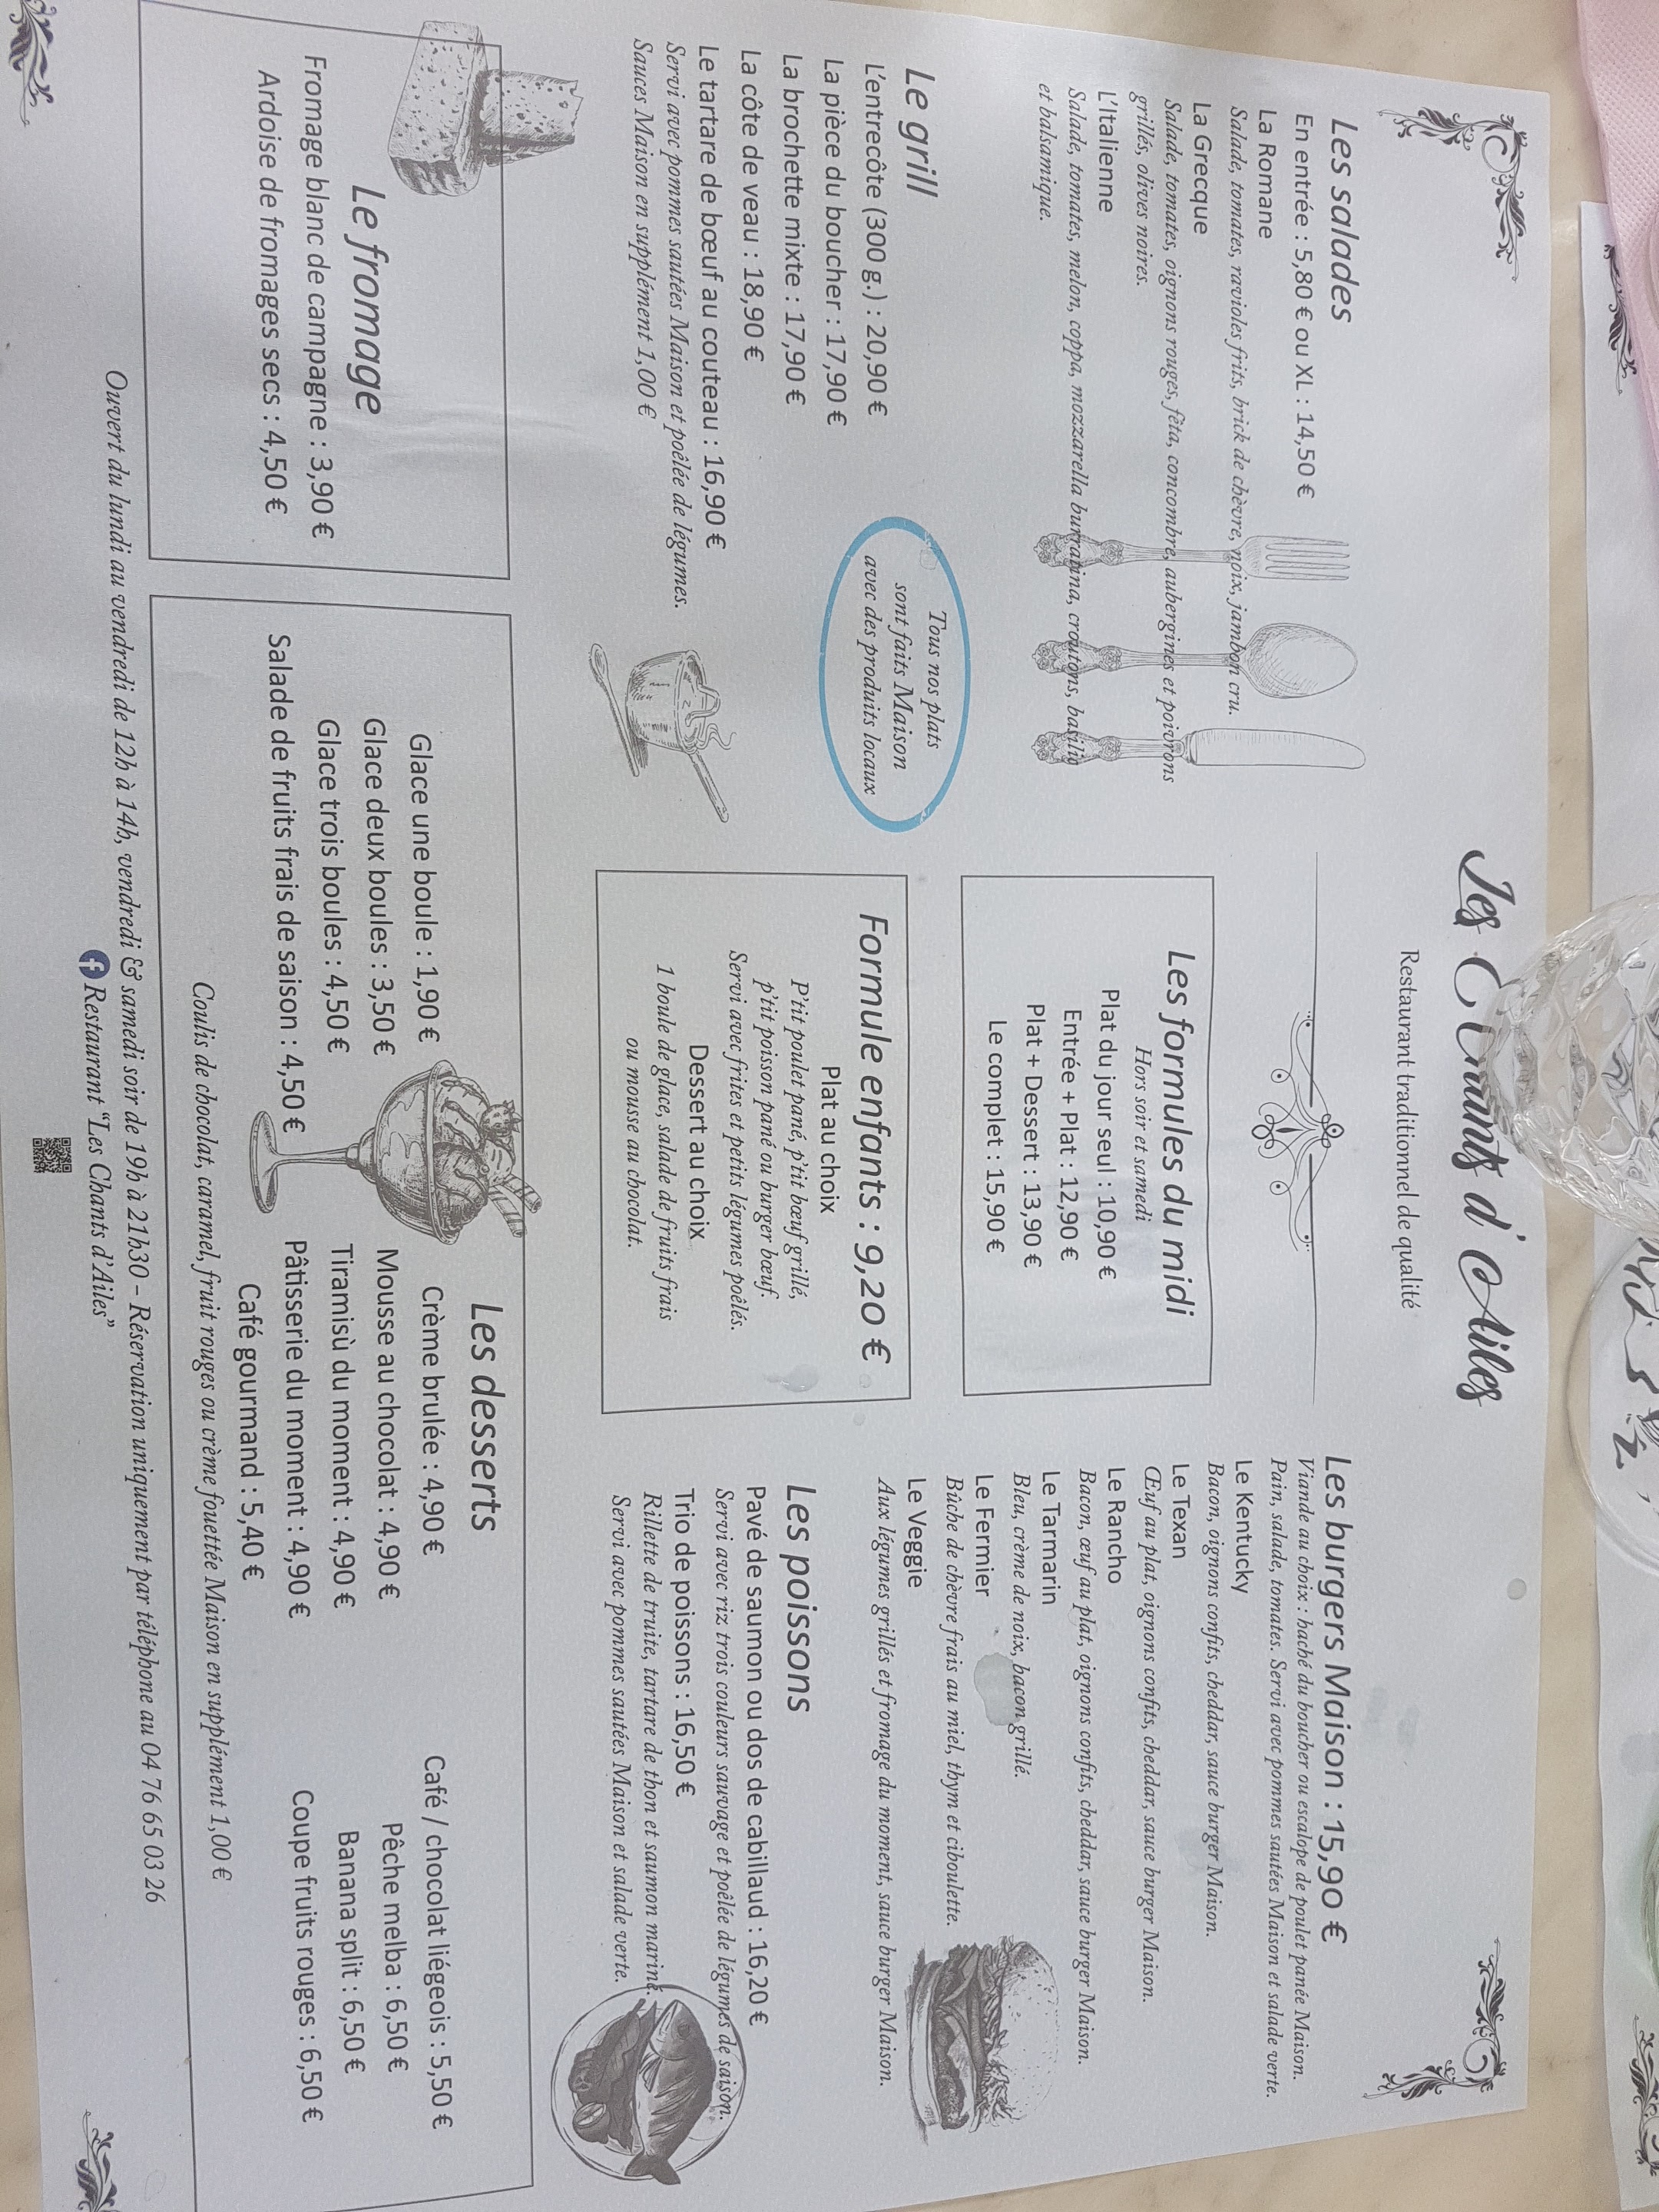 Les Chants d'Ailes
Restaurant traditionnel de qualité
Les salades
En entrée : 5,80 € ou XL : 14,50 €
La Romane
Salade, tomates, ravioles frits, brick de chèvre, noix, jambon cru.
La Grecque
Salade, tomates, oignons rouges, fêta, concombre, aubergines et poivrons
grillés, olives noires.
L'Italienne
Salade, tomates, melon, coppa, mozzarella burratina, croutons, basilic
et balsamique.
Le grill
L'entrecôte (300 g.) : 20,90 €
La pièce du boucher : 17,90 €
La brochette mixte : 17,90 €
La côte de veau : 18,90 €
Le tartare de bœuf au couteau : 16,90 €
Servi avec pommes sautées Maison et poêlée de légumes.
Sauces Maison en supplément 1,00 €
Tous nos plats
sont faits Maison
avec des produits locaux
Les formules du midi
Hors soir et samedi
Plat du jour seul : 10,90 €
Entrée + Plat : 12,90 €
Plat + Dessert : 13,90 €
Le complet : 15,90 €
Formule enfants : 9,20 €
Plat au choix
P'tit poulet pané, p'tit bœuf grillé,
p'tit poisson pané ou burger bœuf.
Servi avec frites et petits légumes poêlés.
Dessert au choix
1 boule de glace, salade de fruits frais
ou mousse au chocolat.
Les burgers Maison : 15,90 €
Viande au choix : haché du boucher ou escalope de poulet panée Maison.
Pain, salade, tomates. Servi avec pommes sautées Maison et salade verte.
Le Kentucky
Bacon, oignons confits, cheddar, sauce burger Maison.
Le Texan
Œuf au plat, oignons confits, cheddar, sauce burger Maison.
Le Rancho
Bacon, œuf au plat, oignons confits, cheddar, sauce burger Maison.
Le Tarmarin
Bleu, crème de noix, bacon grillé.
Le Fermier
Bûche de chèvre frais au miel, thym et ciboulette.
Le Veggie
Aux légumes grillés et fromage du moment, sauce burger Maison.
Les poissons
Pavé de saumon ou dos de cabillaud : 16,20 €
Servi avec riz trois couleurs sauvage et poêlée de légumes de saison.
Trio de poissons : 16,50 €
Rillette de truite, tartare de thon et saumon mariné.
Servi avec pommes sautées Maison et salade verte.
Le fromage
Fromage blanc de campagne : 3,90 €
Ardoise de fromages secs : 4,50 €
Les desserts
Glace une boule : 1,90 €
Glace deux boules : 3,50 €
Glace trois boules : 4,50 €
Salade de fruits frais de saison : 4,50 €
Crème brulée : 4,90 €
Mousse au chocolat : 4,90 €
Tiramisù du moment : 4,90 €
Pâtisserie du moment : 4,90 €
Café gourmand : 5,40 €
Café / chocolat liégeois : 5,50 €
Pêche melba : 6,50 €
Banana split : 6,50 €
Coupe fruits rouges : 6,50 €
Coulis de chocolat, caramel, fruit rouges ou crème fouettée Maison en supplément 1,00 €
Ouvert du lundi au vendredi de 12h à 14h, vendredi & samedi soir de 19h à 21h30 – Réservation uniquement par téléphone au 04 76 65 03 26
Restaurant "Les Chants d'Ailes"